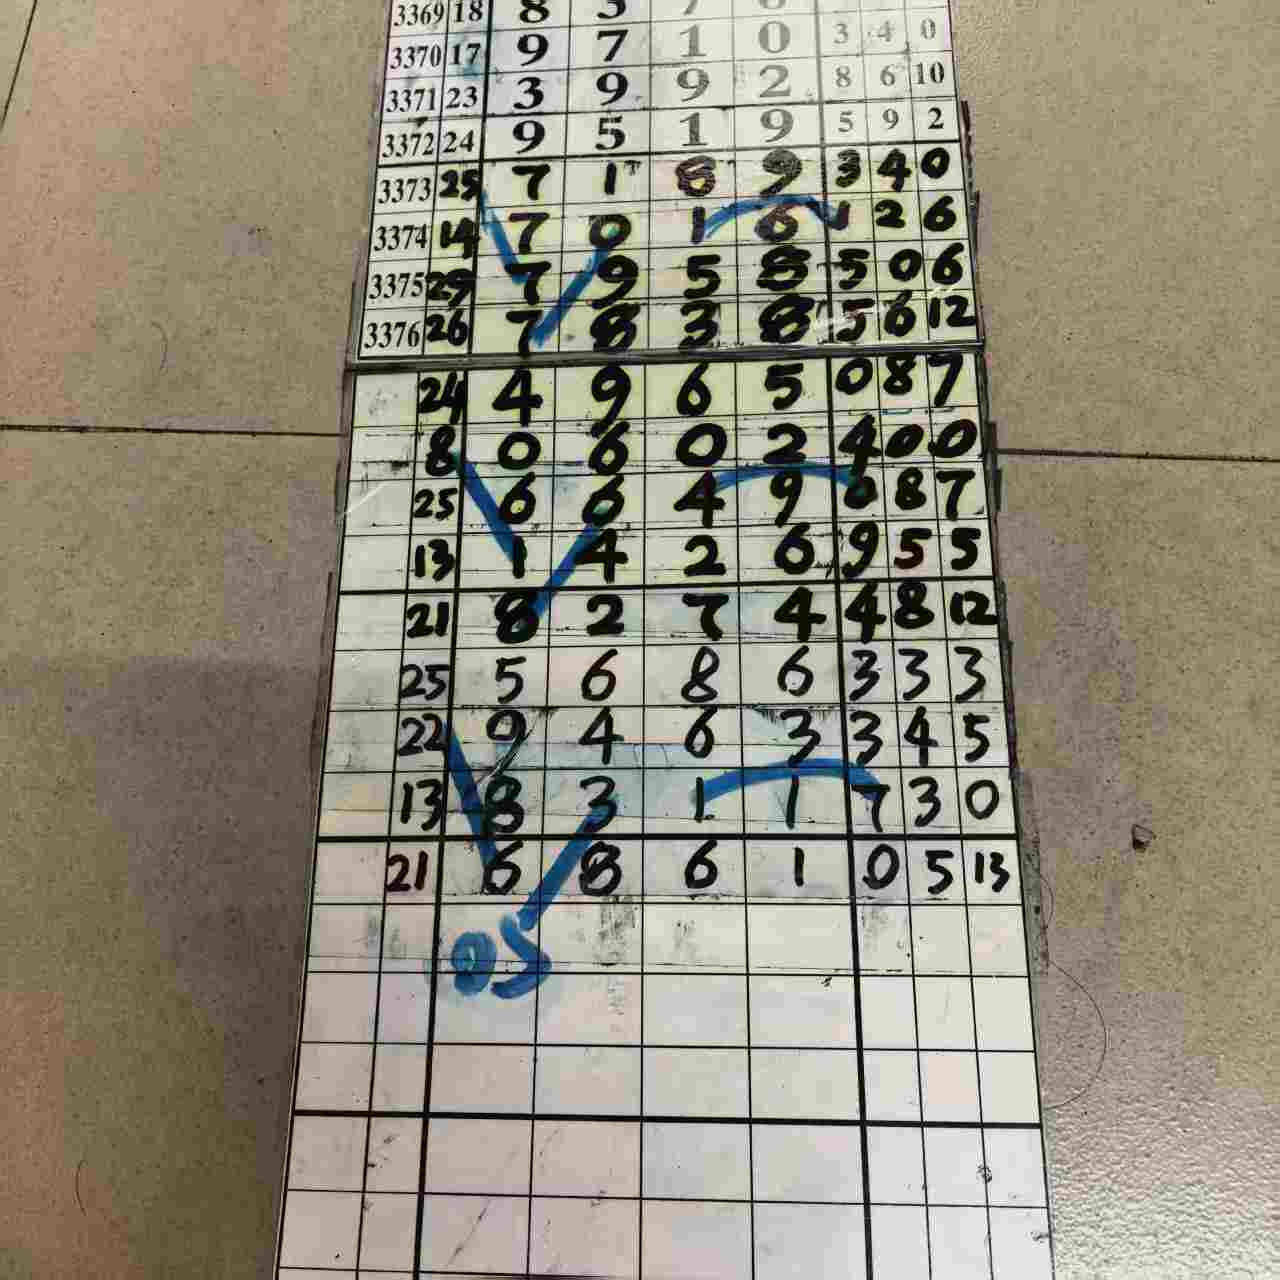 3369 18 8 3
3370 17 9 7 1 0 3 4 0
3371 23 3 9 9 2 8 6 10
3372 24 9 5 1 9 5 9 2
3373 25 7 1 8 9 3 4 0
3374 14 7 0 1 6 1 2 6
3375 29 7 9 5 8 5 0 6
3376 26 7 8 3 8 5 6 12
24 4 9 6 5 0 8 7
8 0 6 0 2 4 0 0
25 6 6 4 9 0 8 7
13 1 4 2 6 9 5 5
21 8 2 7 4 4 8 12
25 5 6 8 6 3 3 3
22 9 4 6 3 3 4 5
13 8 3 1 1 7 3 0
21 6 8 6 1 0 5 13
05